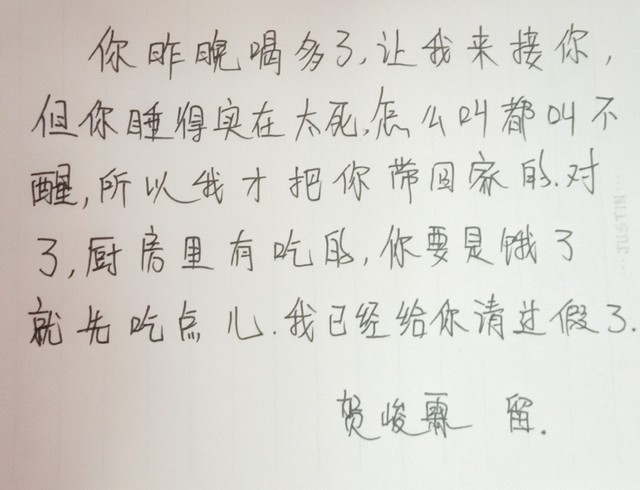 你昨晚喝多了,让我来接你,
但你睡得实在太死,怎么叫都叫不
醒,所以我才把你带回家的.对
了,厨房里有吃的,你要是饿了
就先吃点儿.我已经给你请过假了.
贺峻霖 留.
...JUSTIN...